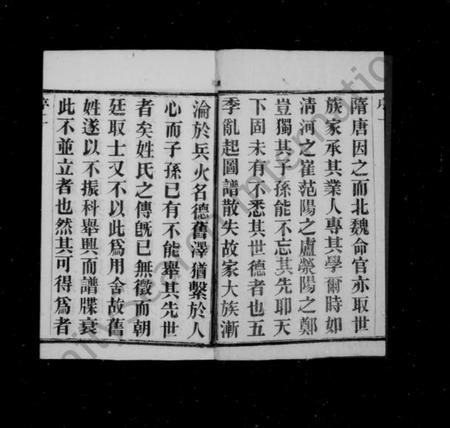 隋唐因之而北魏命官亦取世
族家承其業人專其學爾時如
清河之崔范陽之盧滎陽之鄭
豈獨其子孫能不忘其先聊天
下固未有不悉其世德者也五
季亂起圖譜散失故家大族漸
淪於兵火名德舊澤猶繫於人
心而子孫已有不能舉其先世
者矣姓氏之傳旣已無徵而朝
廷取士又不以此爲用舍故舊
姓遂以不振科舉興而譜牒衰
此不並立者也然其可得爲者